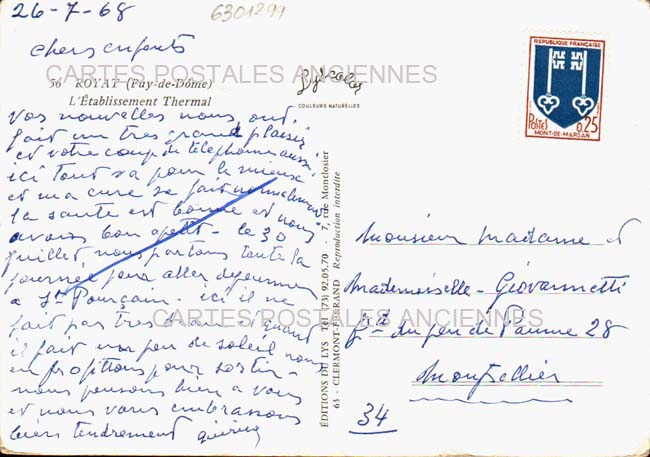 26-7-68
6301299
chers enfants
CARTES POSTALES ANCIENNES
56 ROYAT (Puy-de-Dôme)
L'Établissement Thermal
COULEURS NATURELLES
vos nouvelles nous ont
fait un tres grand plaisir
et votre coup de téléphone aussi
ici tout va pour le mieux
et ma cure se fait normalement
la santé est bonne et nous
avons bon apetit - le 30
juillet nous partons toute la
journee pour aller dejeuner
a St Pourçain - ici il ne
fait pas tres beau et quant
il fait un peu de soleil nous
en profitons pour sortir -
nous pensons bien a vous
et nous vous embrassons
biens tendrement
EDITIONS DU LYS - Tél (73) 92.05.70 - 7, rue Montlosier
63 - CLERMONT-FERRAND Reproduction interdite
REPUBLIQUE FRANÇAISE
POSTES 0,25
MONT-DE-MARSAN
Monsieur madame et
Mademoiselle - Giovannetti
du peu de 28
Montpellier
34
CARTES POSTALES ANCIENNES